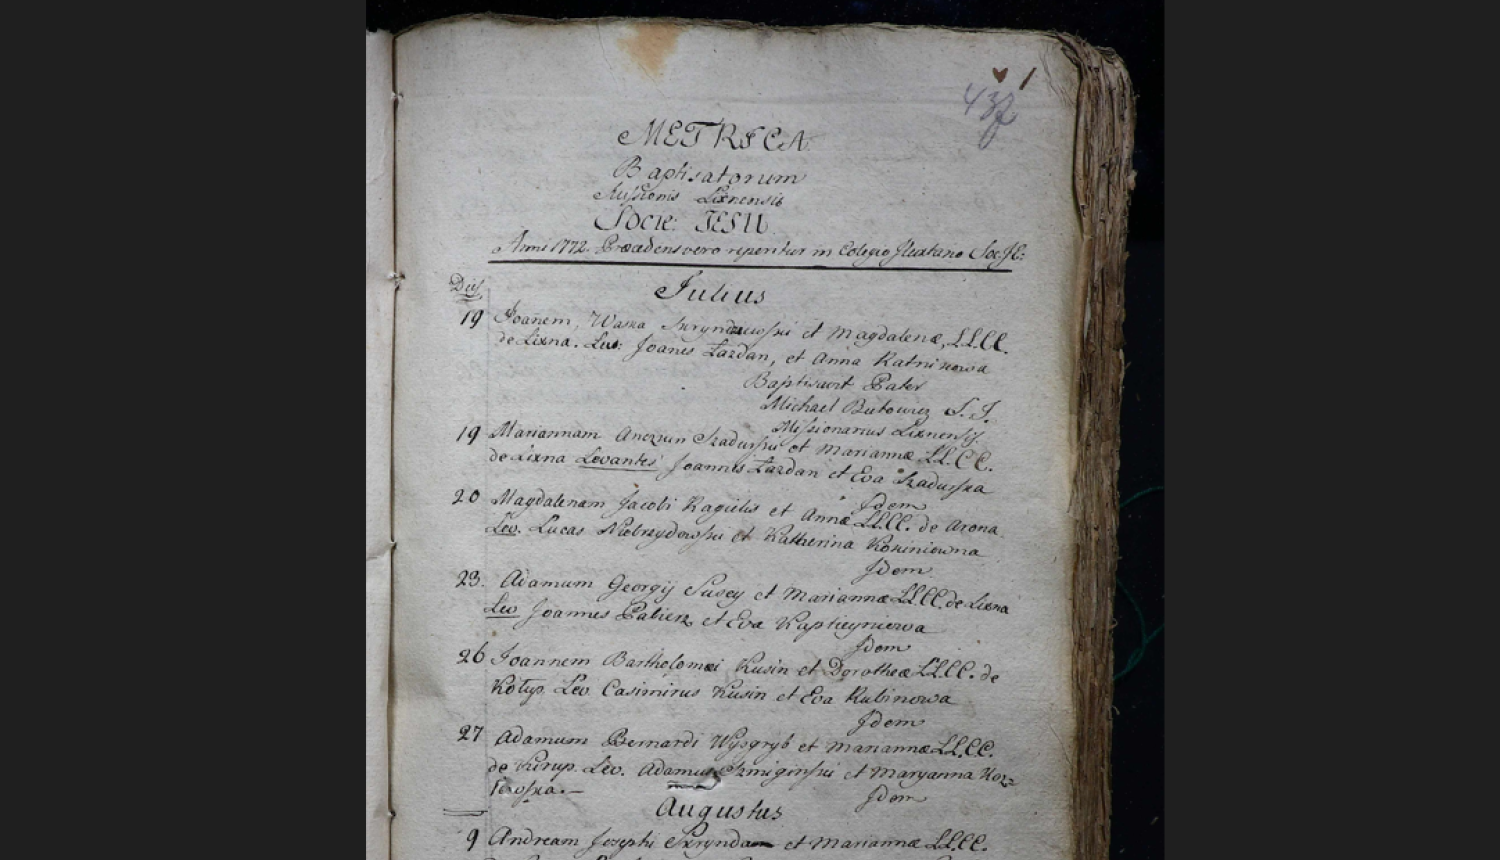 1
METRICA
Baptisatorum
Missionis Lixnensis
Socie: IESU
Anni 1772. Præcedens vero reperitur in Colegio Ilextano Soc. JE:
Dies
Julius
19 Joañem, Waska et Magdalenæ, LL.CC.
de Lixna. Lev: Joanes Łazdan, et Anna Ratninowa
Baptisavit Pater
Michael Butowicz S. J.
Missionarius Lixnensis.
19 Mariannam Szadurski et Mariannæ LL.CC.
de Lixna Levantes Joannes Łazdan et Eva Szadurska
Idem
20 Magdalenam Jacobi Ragielis et Annæ LL.CC. de Arona
Lev. Lucas Niebrzydowski et Katherina Koziniowna
Idem
23. Adamum Georgij Susey et Mariannæ LL.CC. de Lixna
Lev Joannes et Eva
Idem
26 Joannem Bartholomæi Kusin et Dorotheæ LL.CC. de
Kołup. Lev Casimirus Kusin et Eva Rubinowa
Idem
27 Adamum Bernardi Wysgryb et Mariannæ LL.CC.
de Lev. Adamus et Maryanna
Idem
Augustus
9 Andream Josephi et Mariannæ LL.CC.